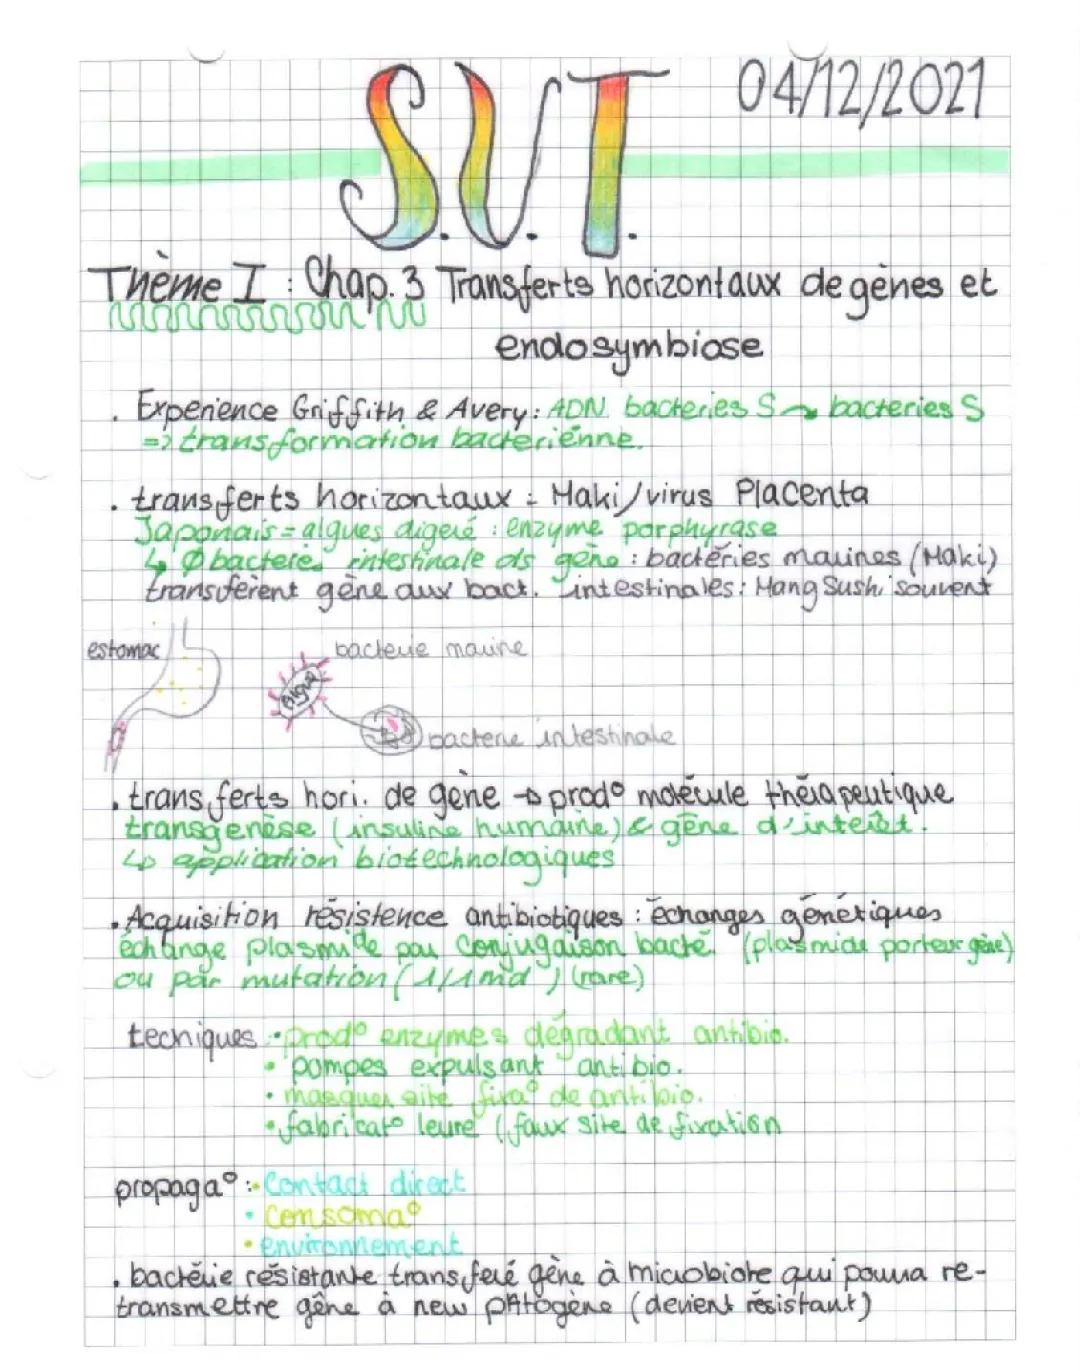 S.V.T.
04/12/2021
Thème I : Chap. 3 Transferts horizontaux de gènes et
endosymbiose
. Experience Griffith & Avery : ADN bacteries S ↝ bacteries S
=> transformation bacterienne.
. transferts horizontaux : Maki/virus Placenta
Japonais = algues digeré : enzyme porphyrase
↳ Ø bacterie intestinale ds gène : bactéries marines (Maki)
transfèrent gène aux bact. intestinales : Mang Sushi souvent
estomac
bacterie marine
algue
bacterie intestinale
. transferts hori. de gène → prod° molécule thérapeutique
transgenèse (insuline humaine) & gène d'interêt.
↳ application biotechnologiques
. Acquisition résistence antibiotiques : échanges génétiques
échange plasmide par conjugaison bacté. (plasmide porteur gène)
ou par mutation (1/1md) (rare)
techniques : • prod° enzymes dégradant antibio.
• pompes expulsant antibio.
• masquer site fixa° de antibio.
• fabricat° leurre (faux site de fixation
propaga° : • Contact direct
• Consoma°
• environnement
. bactérie résistante transferé gène à microbiote qui pourra re-
transmettre gêne à new pAtogène (devient résistant)